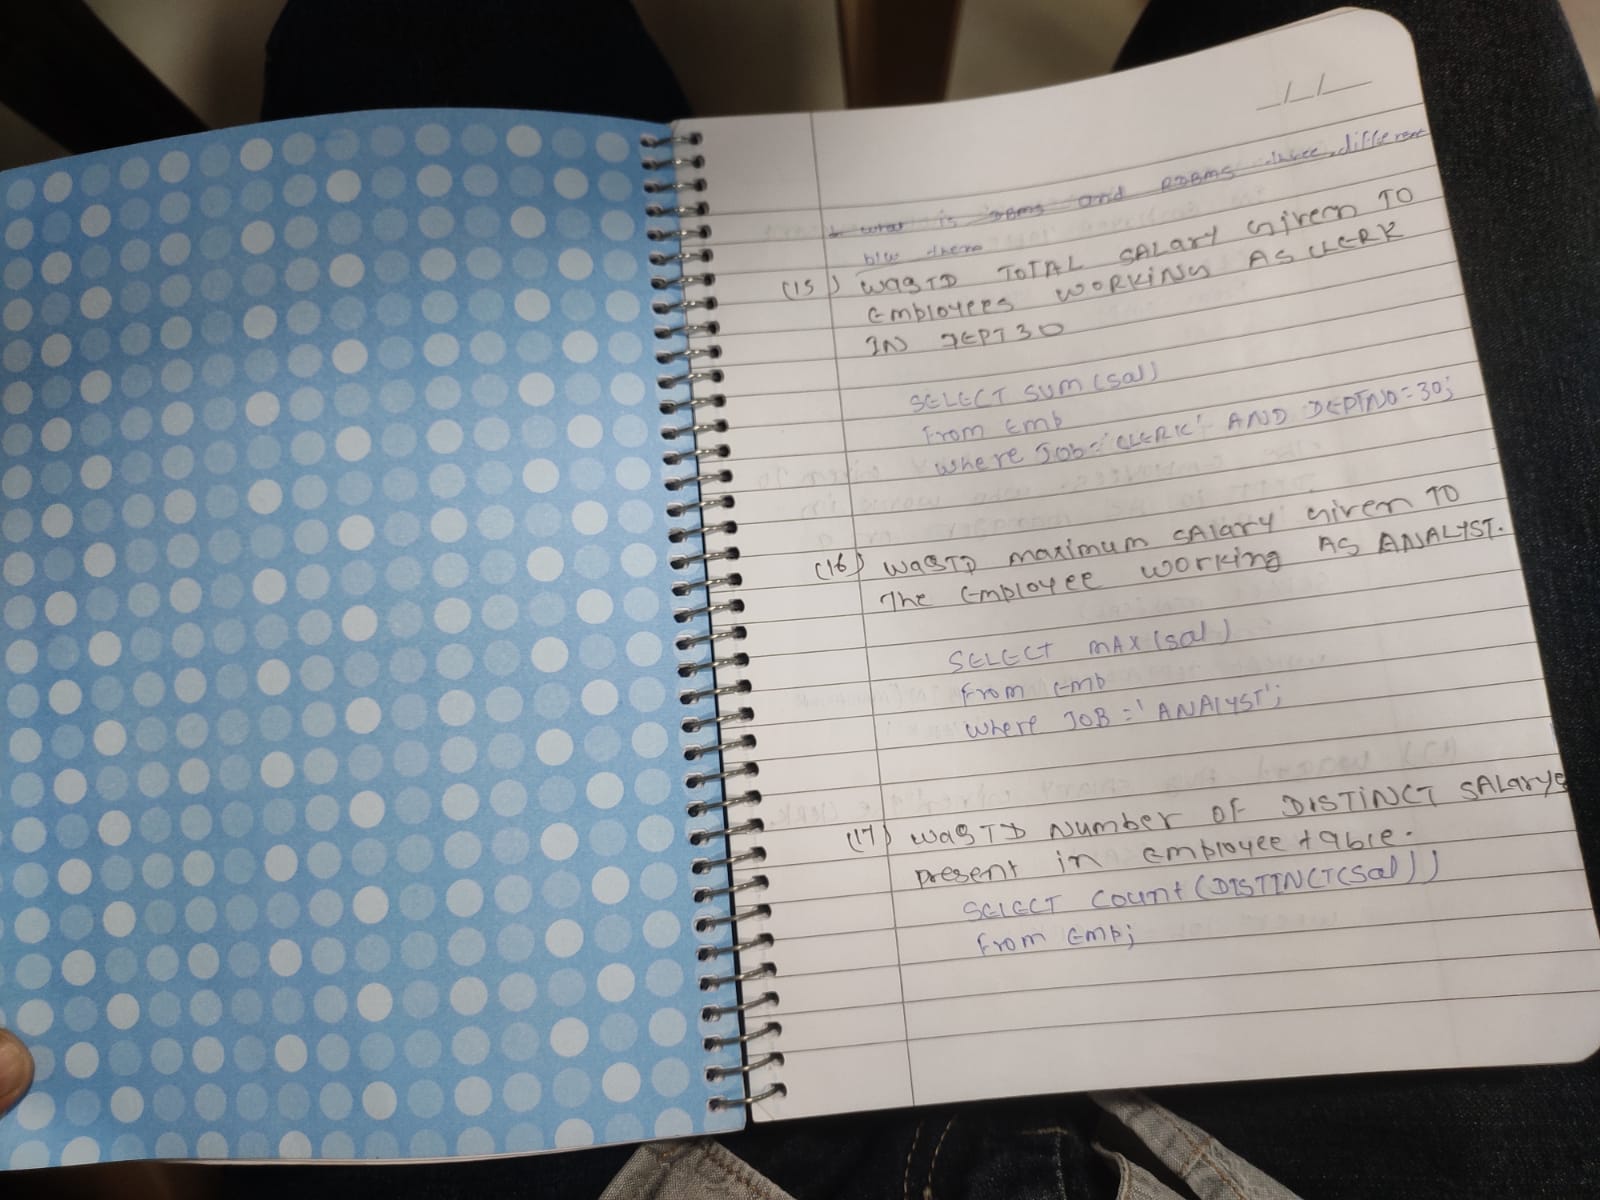 _/_/_
1 what is DBMS and RDBMS three different
b/w them
(15) WAQTD TOTAL SALary Given TO
Employees WORKING AS CLERK
IN DEPT 30
SELECT SUM (Sal)
From Emp
where Job = 'CLERK' AND DEPTNO = 30;
(16) WAQTD maximum SALary Given TO
The Employee working AS ANALYST.
SELECT MAX (sal)
From Emp
where JOB = 'ANALYST';
(17) WAQTD Number OF DISTINCT SALarys
present in Employee table.
SELECT Count (DISTINCT(Sal))
From Emp;